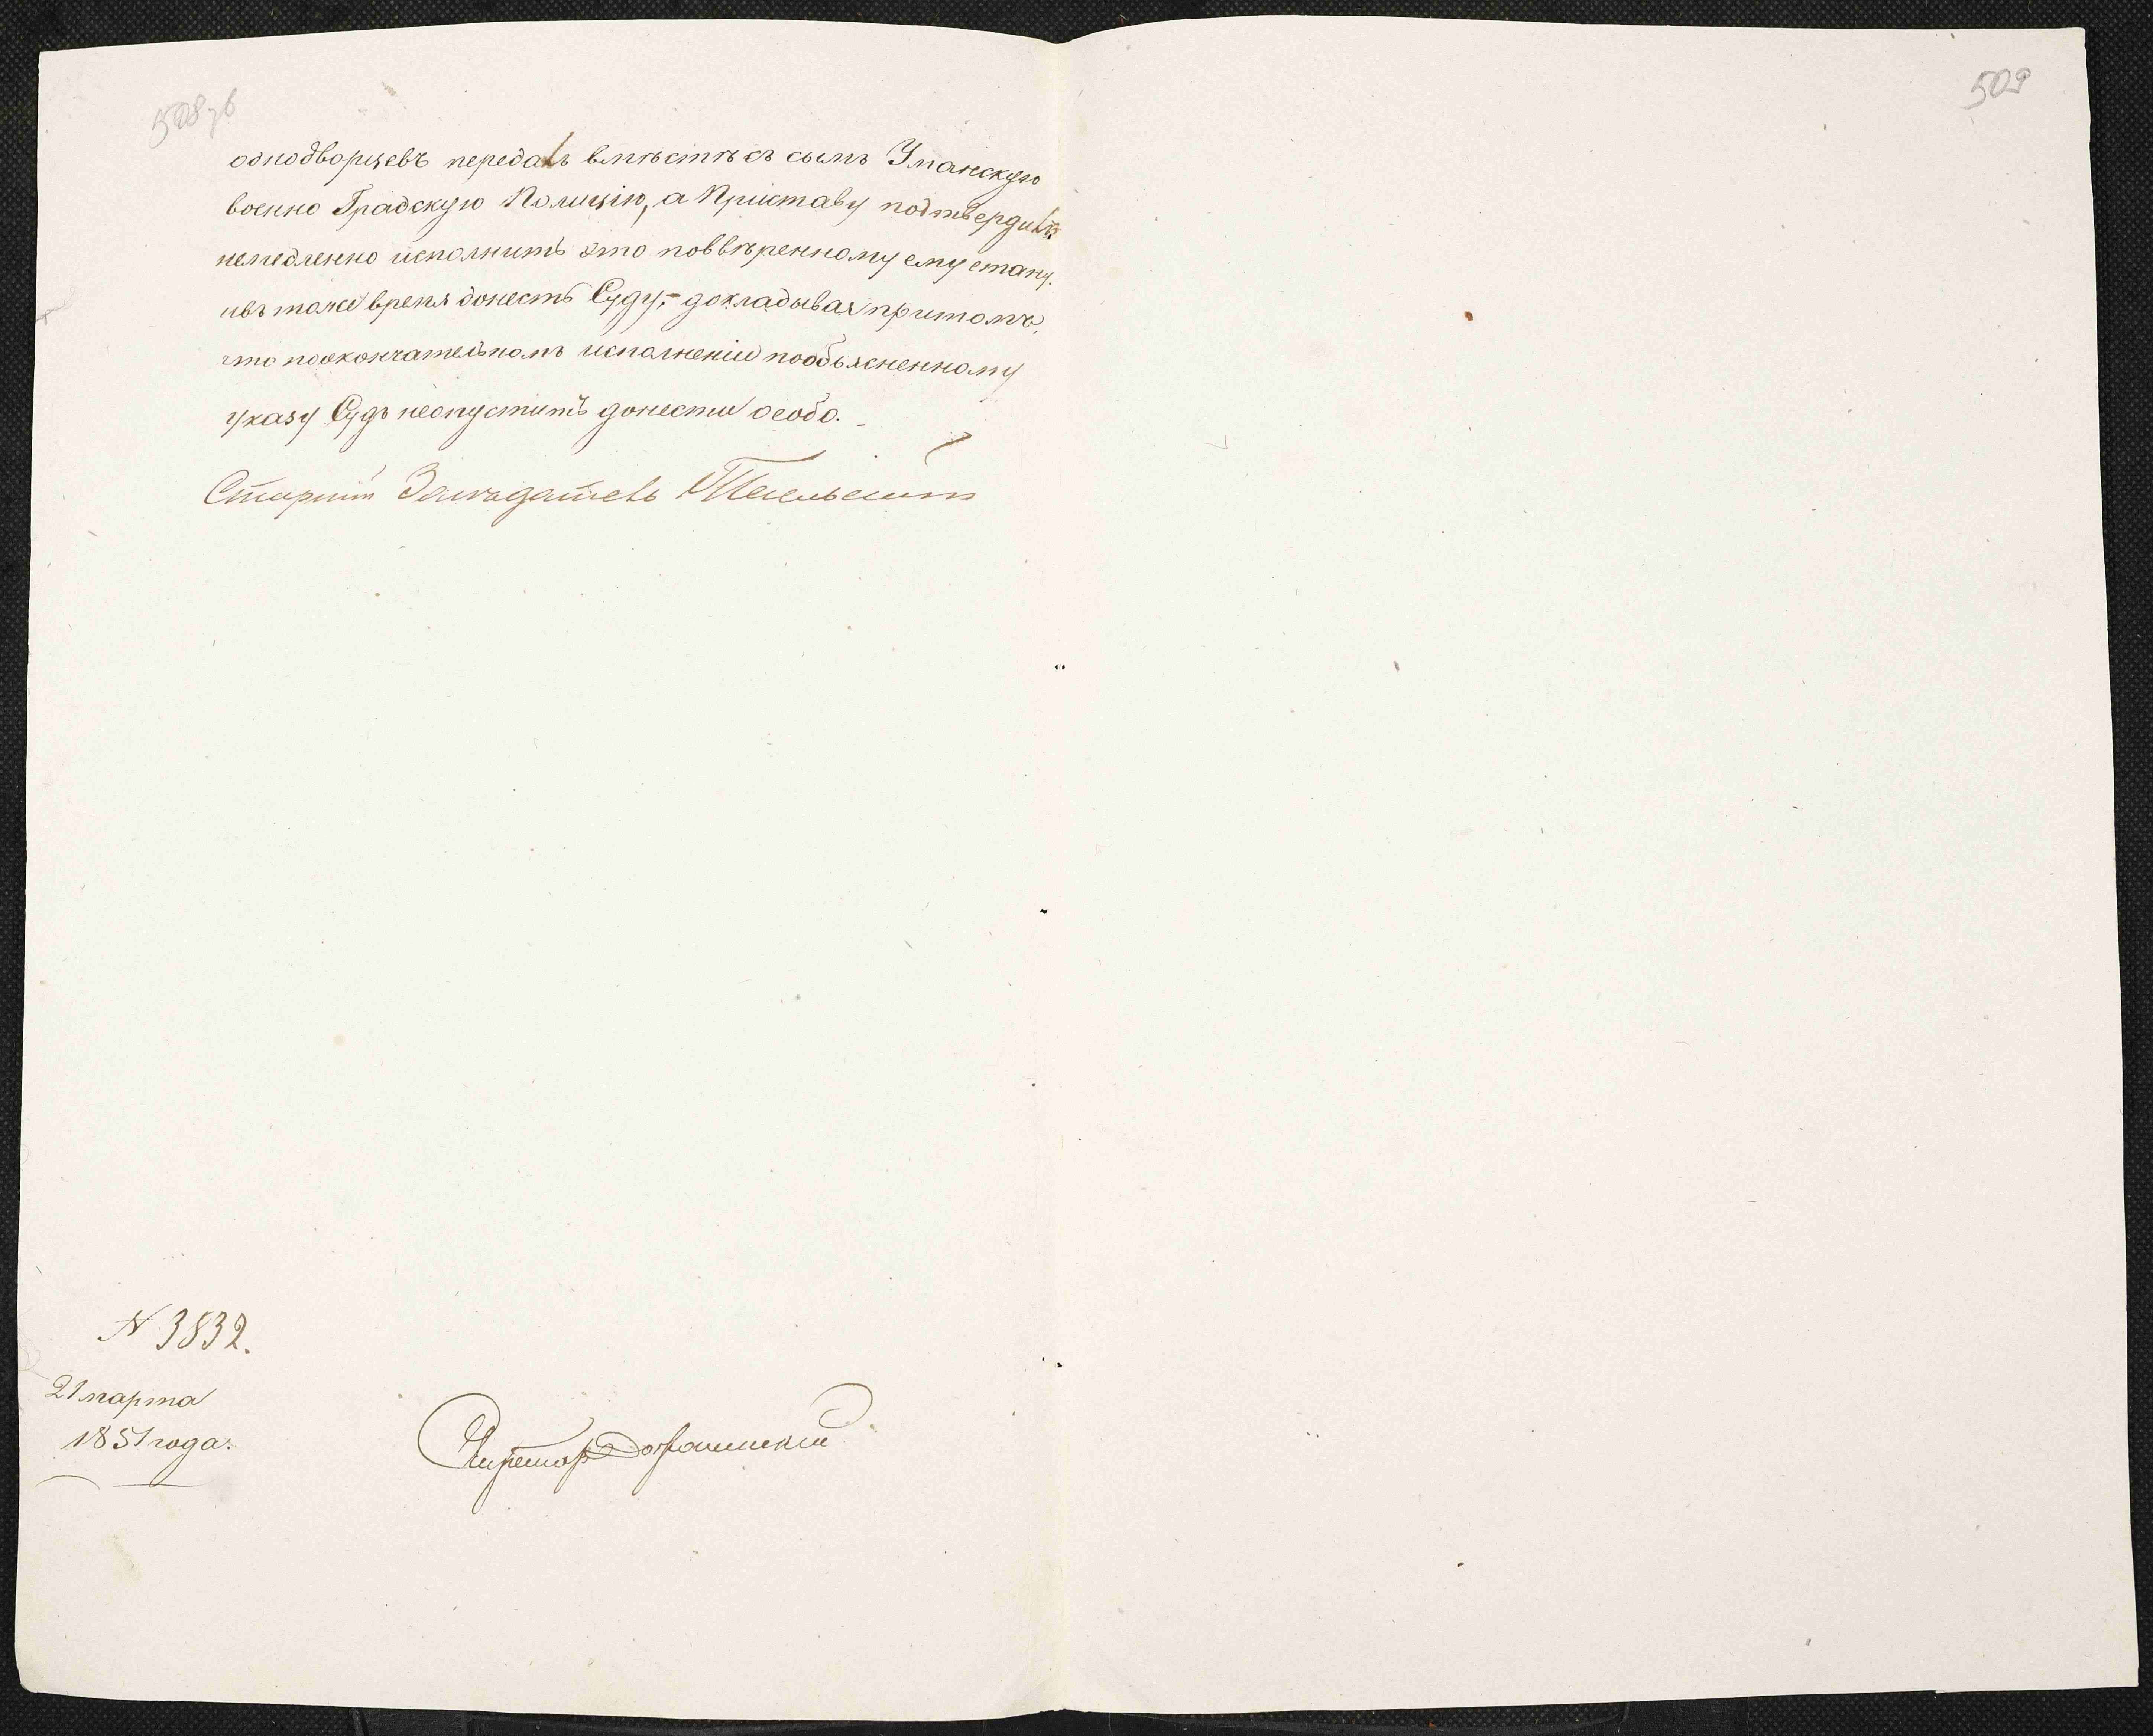 508 зв
509
однодворцевъ передалъ вмѣстѣ съ симъ Уманскую
военно Градскую Полицію, а Приставу подтвердилъ
немедленно исполнить это поввѣренному ему стану.
ивъ тоже время донесть Суду,- докладывая притомъ,
что поокончательномъ исполненіи пообъясненному
указу Судъ неопуститъ донести особо.
Старшій Засѣдатель
N 3832.
21 марта
1851 года.